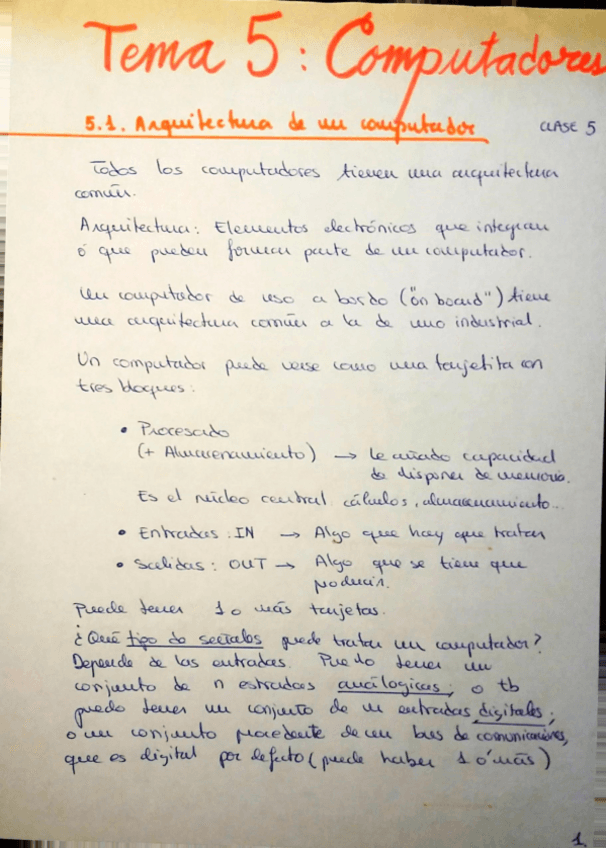 Tema 5: Computadores
5.1. Arquitectura de un computador CLASE 5
Todos los computadores tienen una arquitectura
común.
Arquitectura: Elementos electrónicos que integran
ó que pueden formar parte de un computador.
Un computador de uso a bordo ("on board") tiene
una arquitectura común a la de uno industrial.
Un computador puede verse como una tarjetita con
tres bloques:
• Procesado
(+ Almacenamiento) → Le añado capacidad
de disponer de memoria.
Es el núcleo central. cálculos, almacenamiento...
• Entradas: IN → Algo que hay que tratar
• Salidas: OUT → Algo que se tiene que
producir.
Puede tener 1 o más tarjetas.
¿Qué tipo de señales puede tratar un computador?
Depende de las entradas. Puedo tener un
conjunto de n entradas analógicas; o tb
puedo tener un conjunto de m entradas digitales;
o un conjunto procedente de un bus de comunicaciones,
que es digital por defecto (puede haber 1 ó más)
1